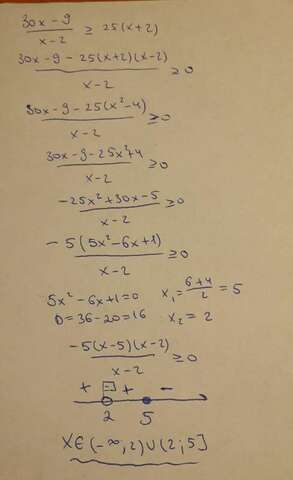 (30x-9)/(x-2) ≥ 25(x+2)
(30x-9-25(x+2)(x-2))/(x-2) ≥0
(30x-9-25(x²-4))/(x-2) ≥0
(30x-9-25x²+4)/(x-2) ≥0
(-25x²+30x-5)/(x-2) ≥0
(-5(5x²-6x+1))/(x-2) ≥0
5x²-6x+1=0 x₁=(6+4)/2=5
D=36-20=16 x₂=2
(-5(x-5)(x-2))/(x-2) ≥0
+ - + -
2 5
X∈(-∞;2)∪(2;5]